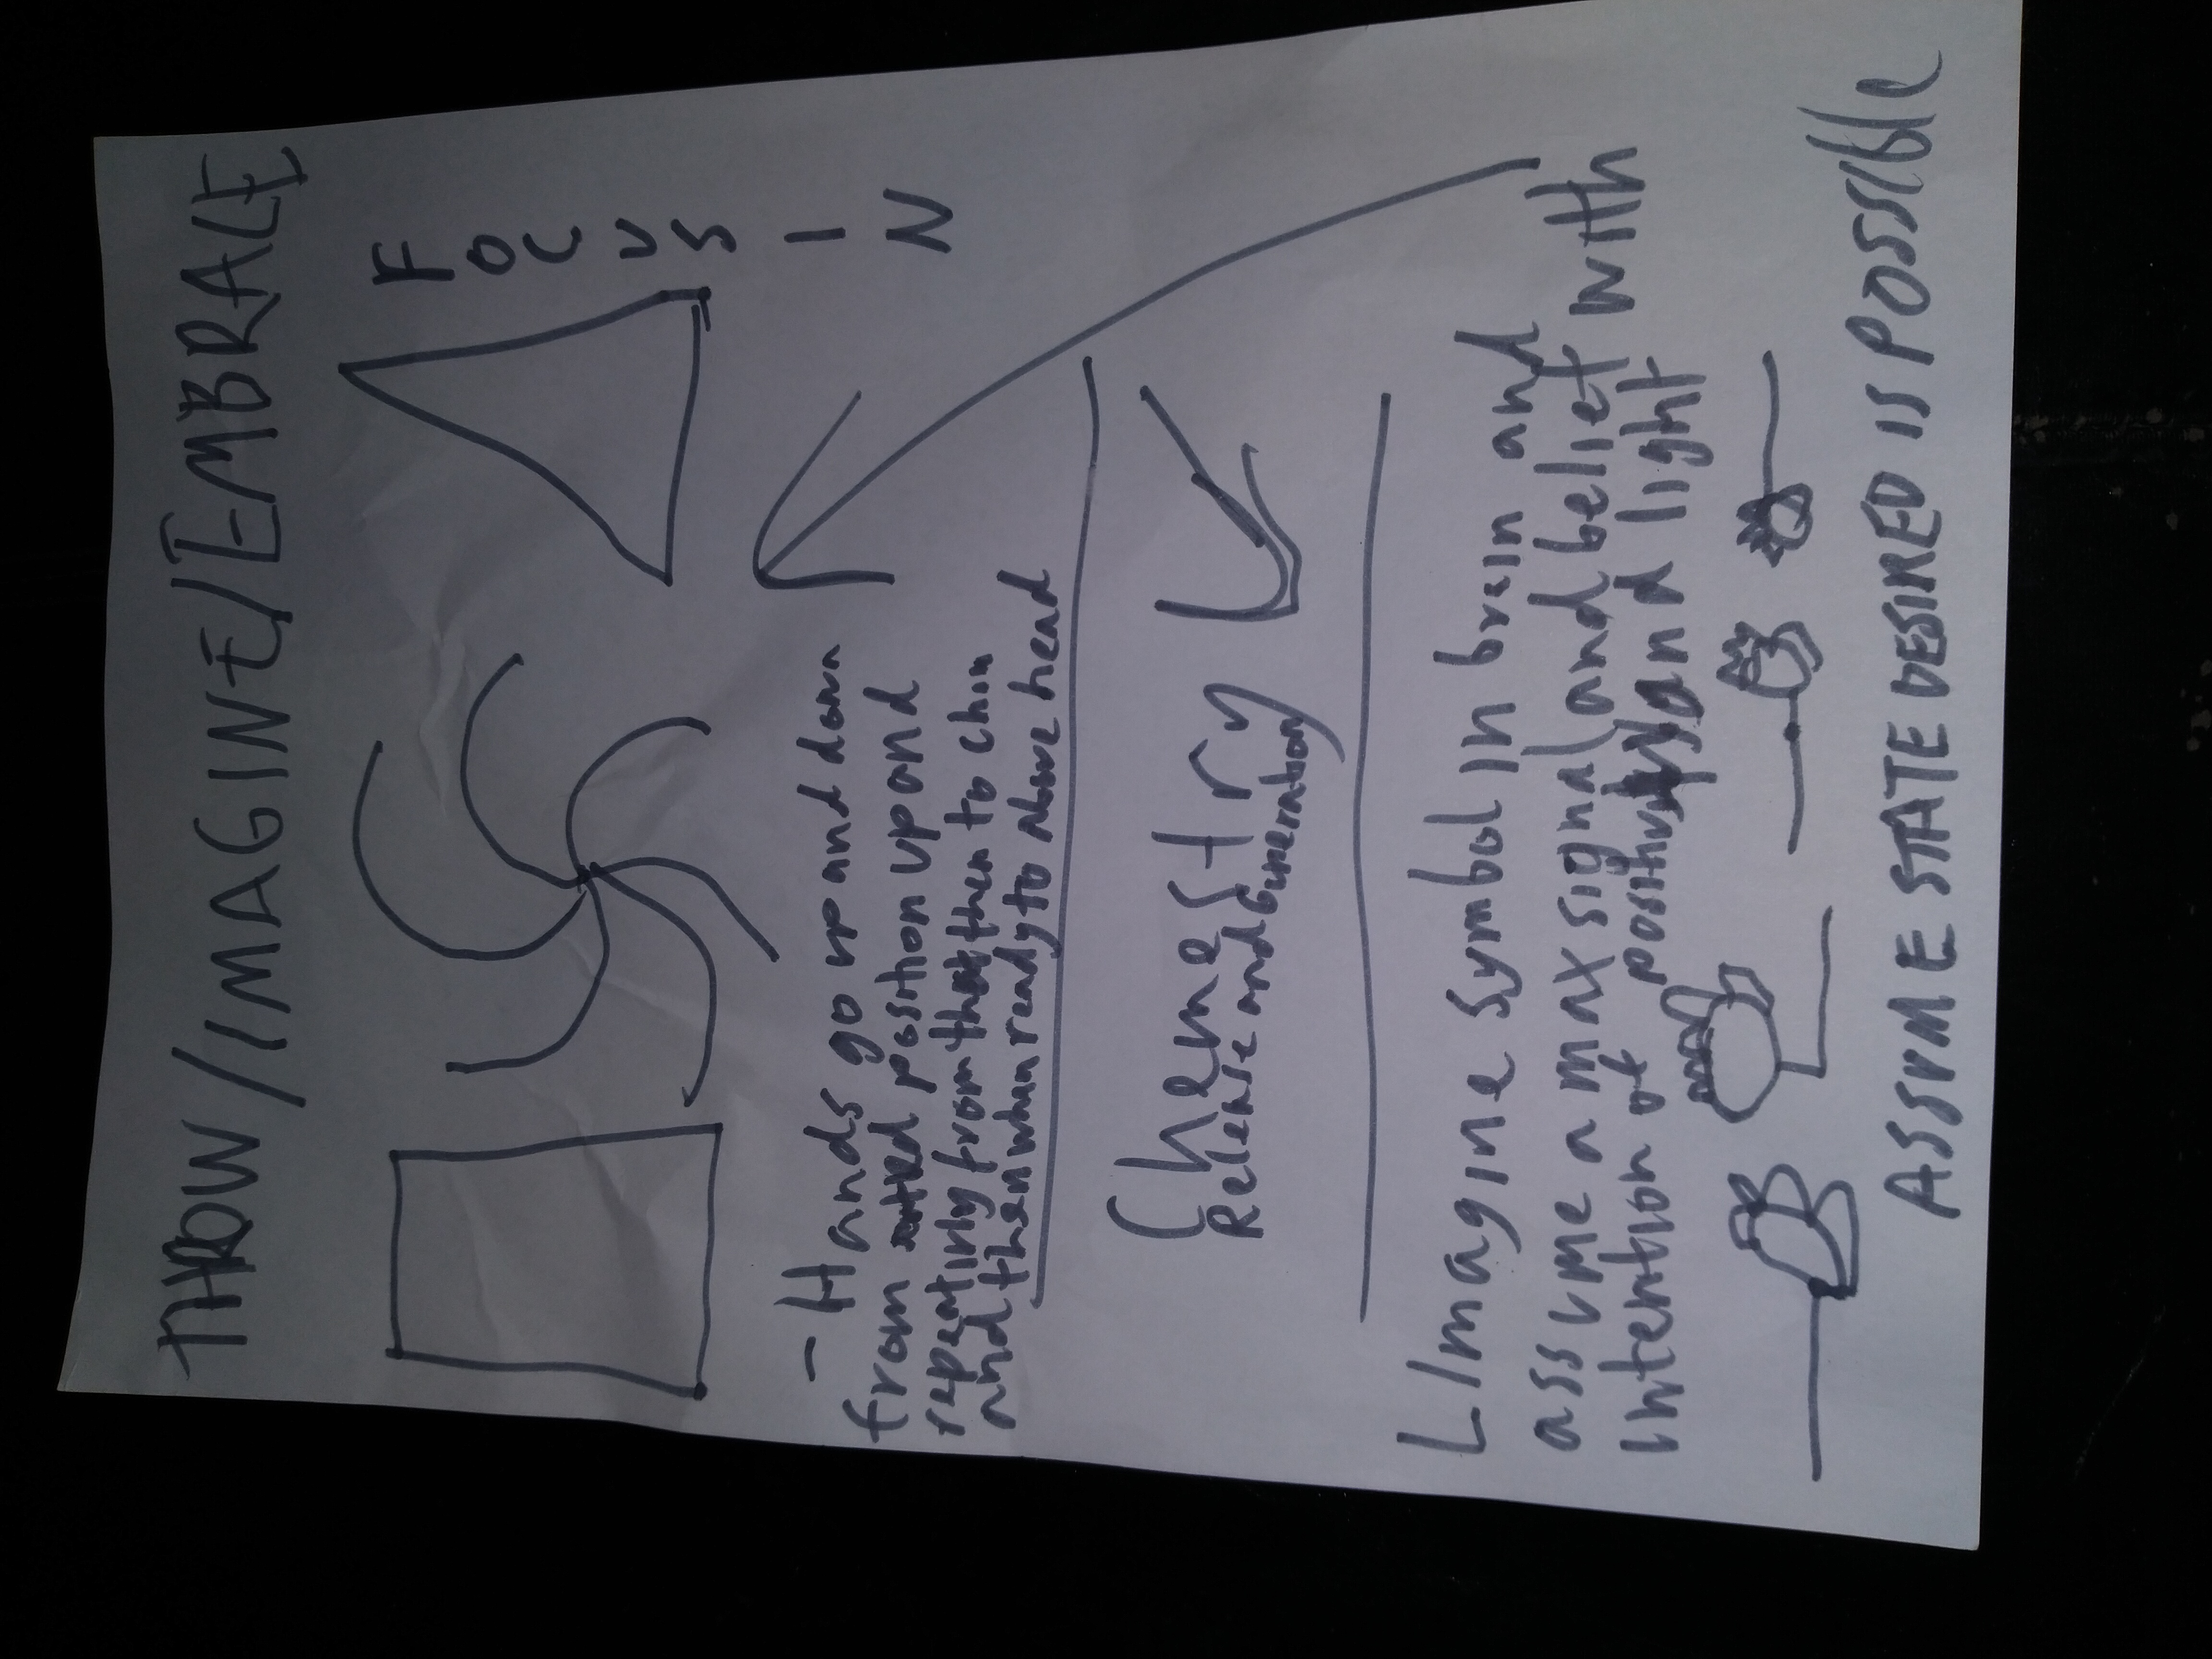 THROW/IMAGINE/EMBRACE
FOCUS IN
- Hands go up and down
from position up and
repeating from that then to chin
and then when ready to above head
Chemestry
Release and Generation
Imagine symbol in brain and
assume a max signal and belief with
intention of and light
ASSUME STATE DESIRED IS POSSIBLE